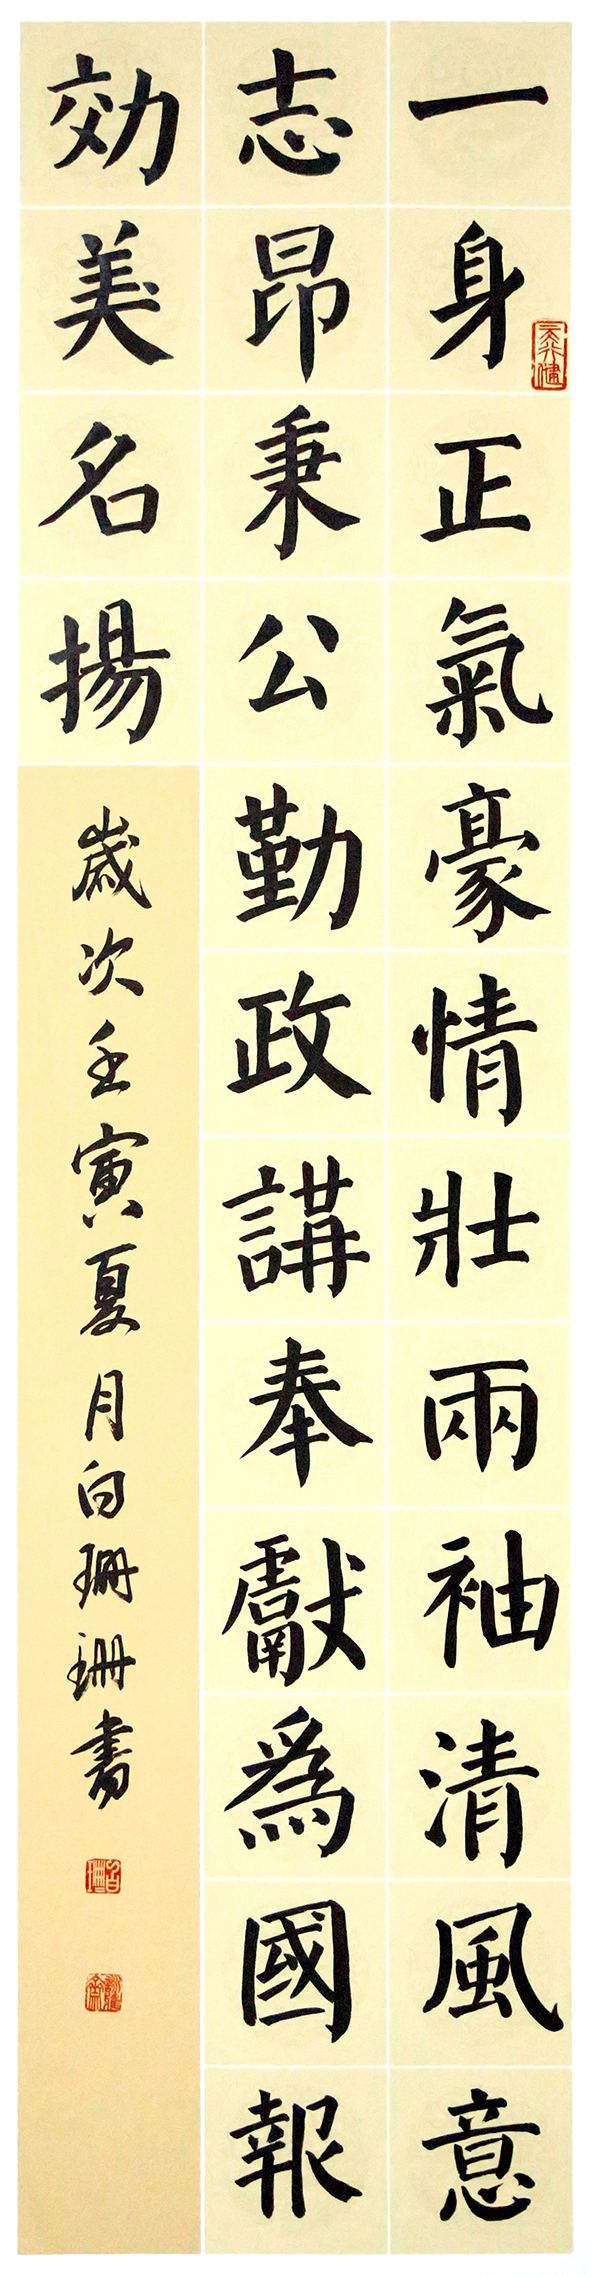 一身正氣豪情壯兩袖清風意
志昂秉公勤政講奉獻為國報
効美名揚
歲次壬寅夏月白珊珊書